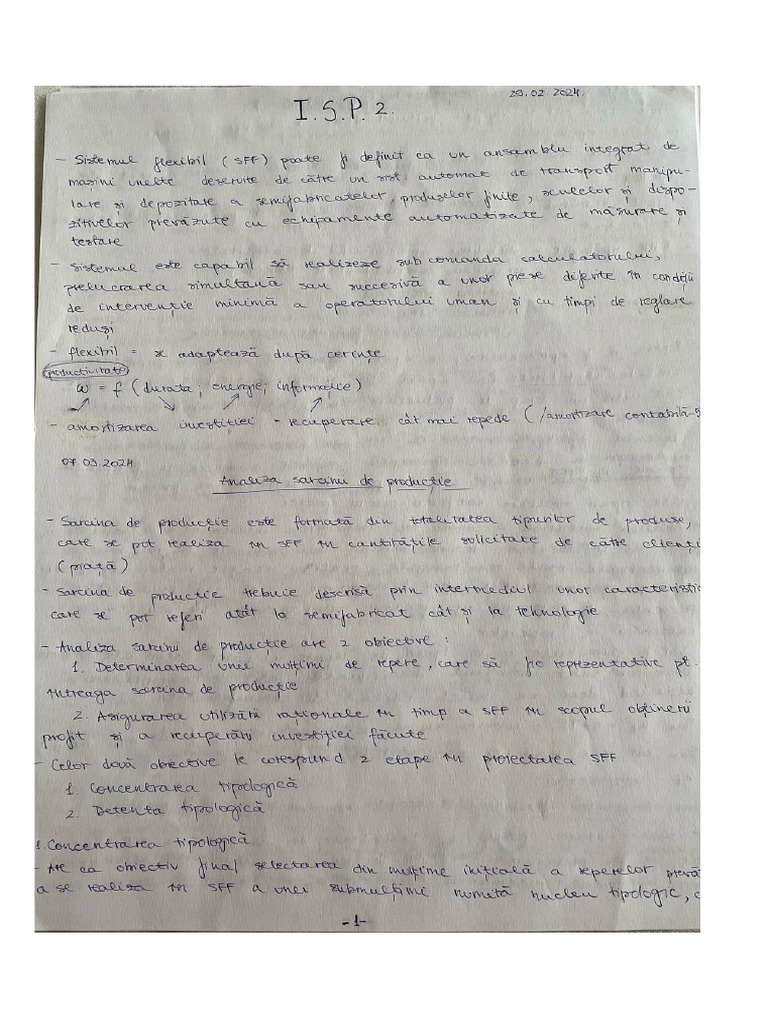 29.02.2024.
I.S.P. 2.
- Sistemul flexibil (SFF) poate fi definit ca un ansamblu integrat de
masini unelte deservite de către un sist. automat de transport manipu-
lare și depozitare a semifabricatelor, produselor finite, sculelor și dispo-
zitivelor prevăzute cu echipamente automatizate de măsurare și
testare
- Sistemul este capabil să realizeze sub comanda calculatorului,
prelucrarea simultană sau succesivă a unor piese diferite în condiții
de intervenție minimă a operatorului uman și cu timpi de reglare
reduși
- flexibil = se adaptează după cerințe
productivitate
W = f (durata; energie; informație)
- amortizarea investiției = recuperare cât mai repede (/amortizare contabilă-5
07.03.2024
Analiza sarcinii de producție
- Sarcina de producție este formată din totalitatea tipurilor de produse,
care se pot realiza în SFF în cantitățile solicitate de către clienți
(piață)
- Sarcina de producție trebuie descrisă prin intermediul unor caracteristic
care se pot referi atât la semifabricat cât și la tehnologie
- Analiza sarcinii de producție are 2 obiective :
1. Determinarea unei mulțimi de repere, care să fie reprezentative pt.
întreaga sarcina de producție
2. Asigurarea utilizării raționale în timp a SFF în scopul obținerii
profit și a recuperării investiției făcute
- Celor două obiective le corespund 2 etape în proiectarea SFF
1. Concentrarea tipologică
2. Detenta tipologică
1. Concentrarea tipologică
- Are ca obiectiv final selectarea din mulțime inițială a reperelor prevă
a se realiza în SFF a unei submulțime numită nucleu tipologic, c
-1-